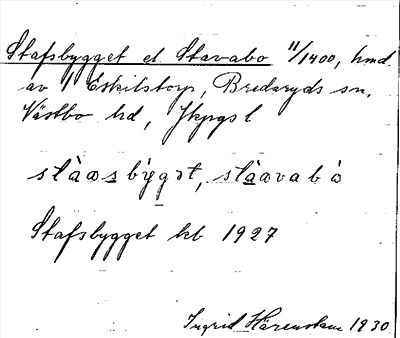 Stafsbygget el. Stavabo 11/1400, hmd.
av 1 Eskilstorp, Bredaryds sn,
Västbo hd, Jkpgs l
stàasbýgət, stàavabò
Stafsbygget kb 1927
Ingrid Härenstam 1930